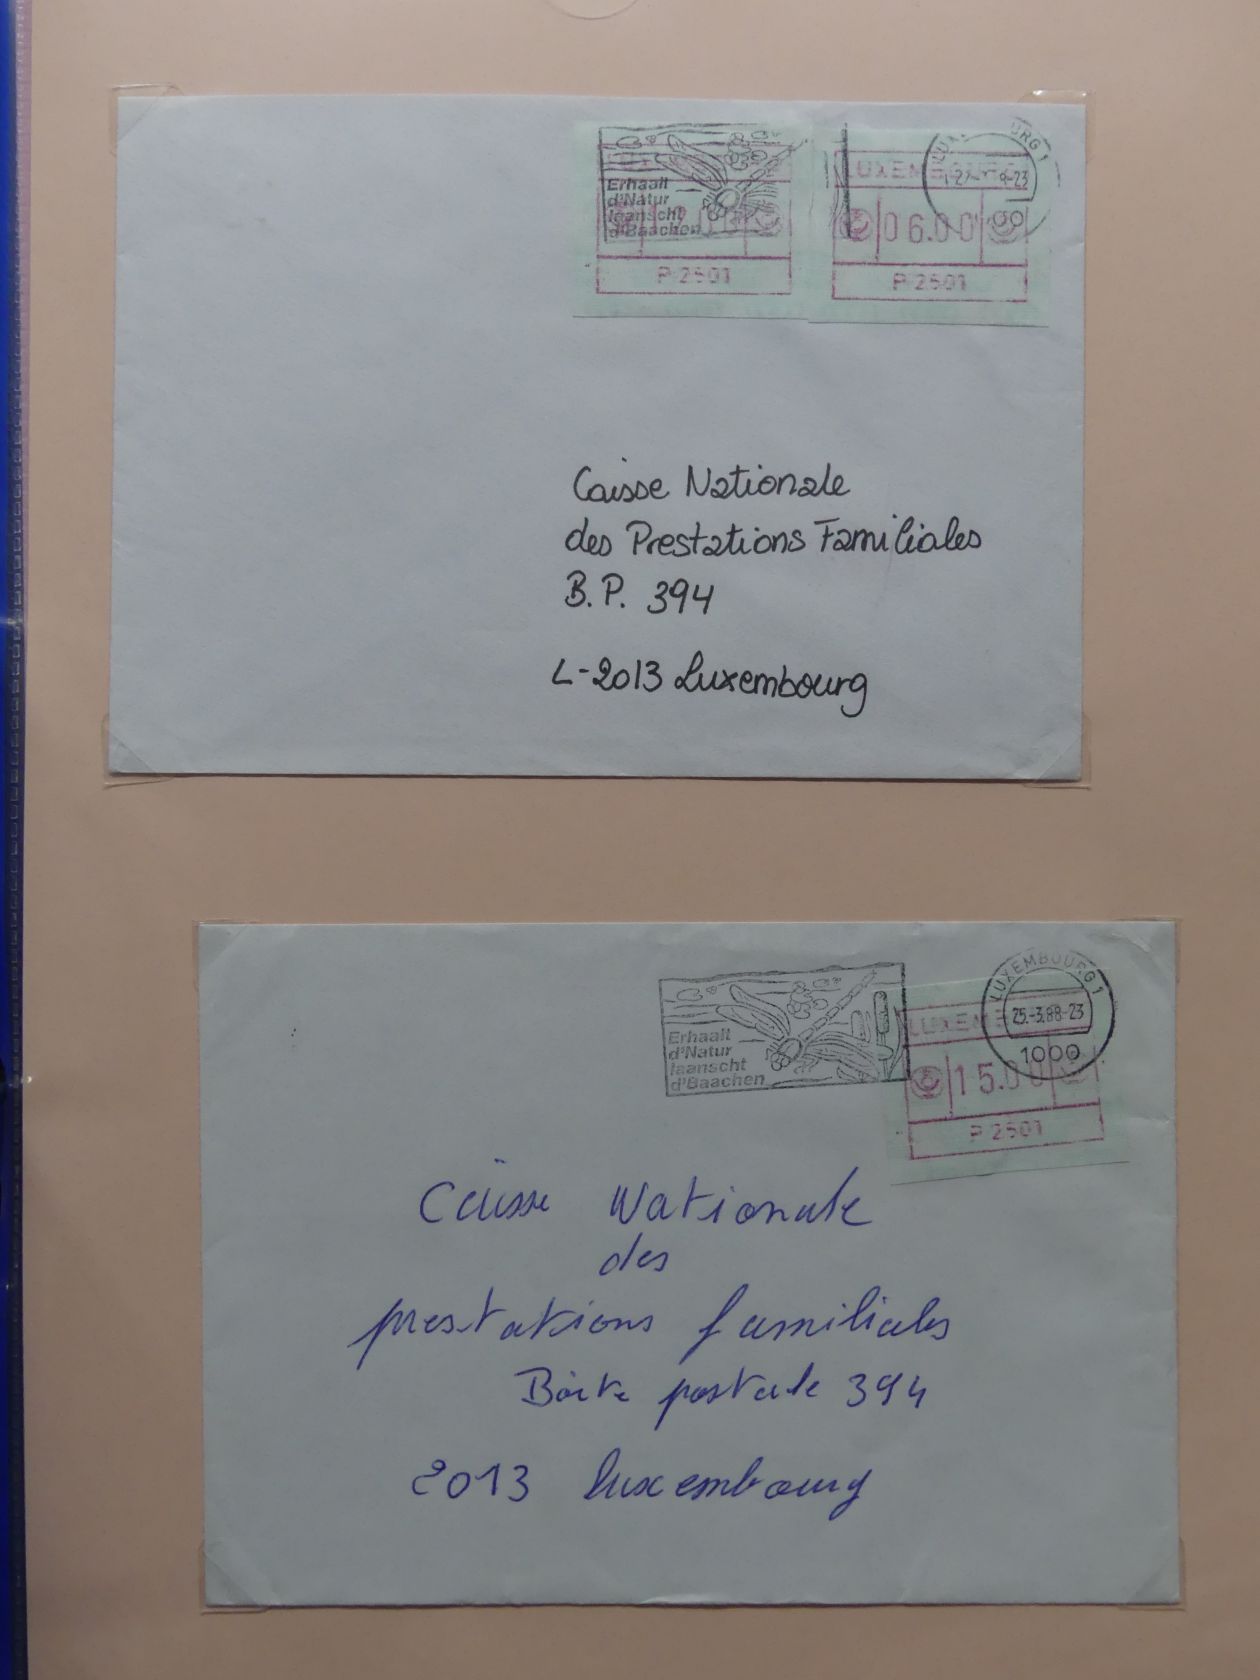 Erhaalt
d'Natur
laanscht
d'Baachen
P 2501
LUXEMBOURG
06.00
P 2501
Caisse Nationale
des Prestations Familiales
B.P. 394
L-2013 Luxembourg
Erhaalt
d'Natur
laanscht
d'Baachen
LUXEMBOURG 1
25.-3.88-23
1000
15.00
P 2501
Caisse Nationale
des
prestations familiales
Boîte postale 394
2013 Luxembourg